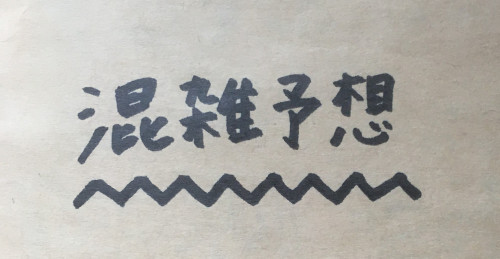 混雑予想